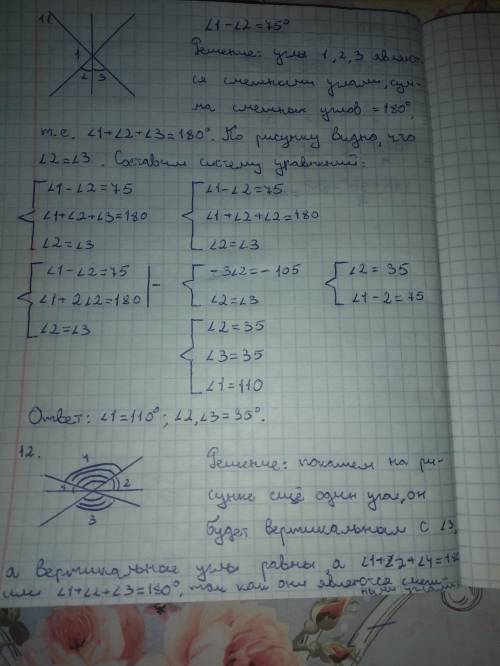 11
∠1-∠2=75°
1
2
3
Решение: углы 1,2,3 являют.
ся смежными углами, сум-
ма смежных углов =180°,
т.е. ∠1+∠2+∠3=180°. По рисунку видно, что
∠2=∠3. Составим систему уравнений:
∠1-∠2=75
∠1-∠2=75
∠1+∠2+∠3=180
∠1+∠2+∠2=180
∠2=∠3
∠2=∠3
∠1-∠2=75
∠1+2∠2=180
∠2=∠3
-
-3∠2=-105
∠2=∠3
∠2=35
∠1-2=75
∠2=35
∠3=35
∠1=110
Ответ: ∠1=110°; ∠2,∠3=35°.
12.
4
1
2
3
Решение: покажем на ри-
сунке ещё один угол, он
будет вертикальном с ∠3,
а вертикальные углы равны, а ∠1+∠2+∠4=180
или ∠1+∠2+∠3=180°, так как они являются смеж-
ными углами